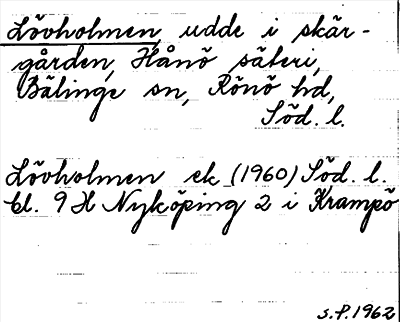 Lövholmen, udde i skär-
gården, Hånö säteri,
Bälinge sn, Rönö hd,
Söd. l.
Lövholmen ek (1960) Söd. l.
bl. 9 H Nyköping 2 i Krampö
S.P. 1962